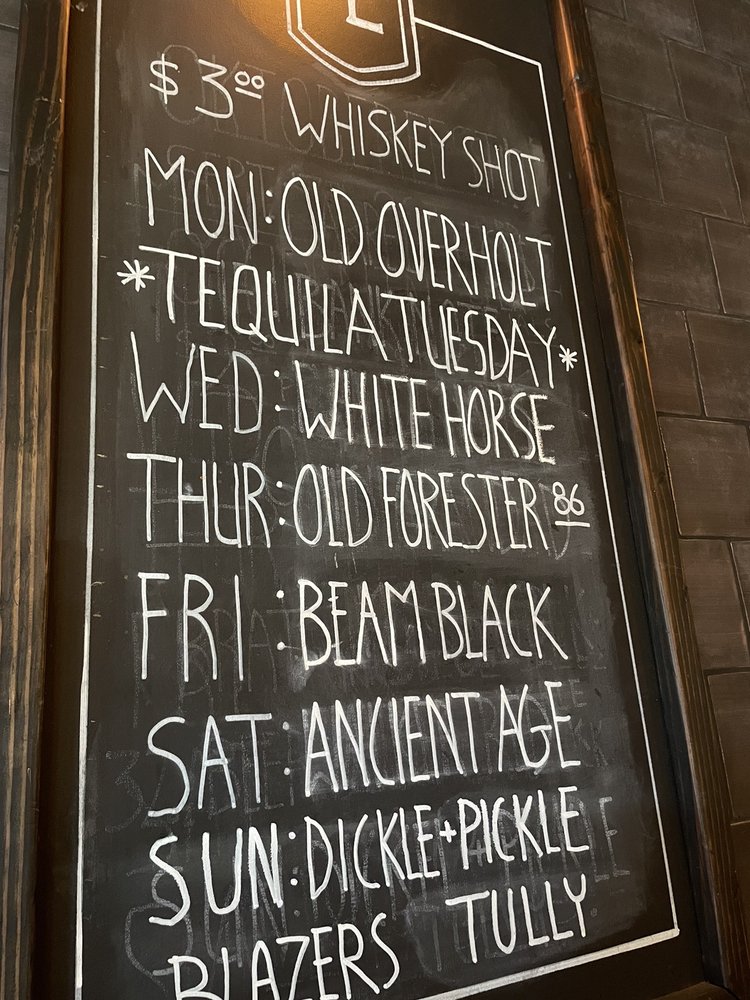 L
$ 3.00 WHISKEY SHOT
MON: OLD OVERHOLT
*TEQUILA TUESDAY*
WED: WHITE HORSE
THUR: OLD FORESTER 86
FRI: BEAM BLACK
SAT: ANCIENT AGE
SUN: DICKLE+PICKLE
BLAZERS TULLY